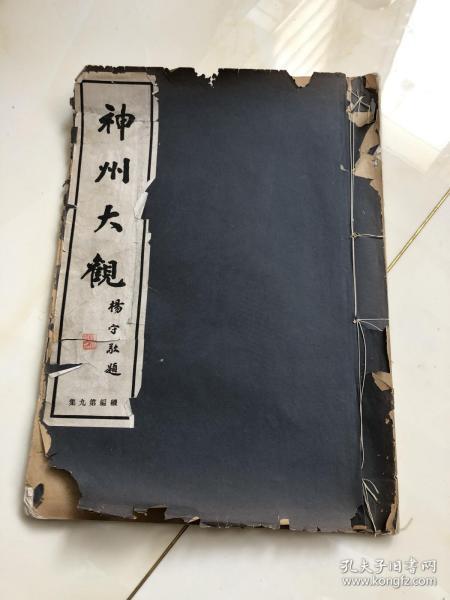 神州大觀
楊守敬題
續編第九集
孔夫子旧书网
www.kongfz.com